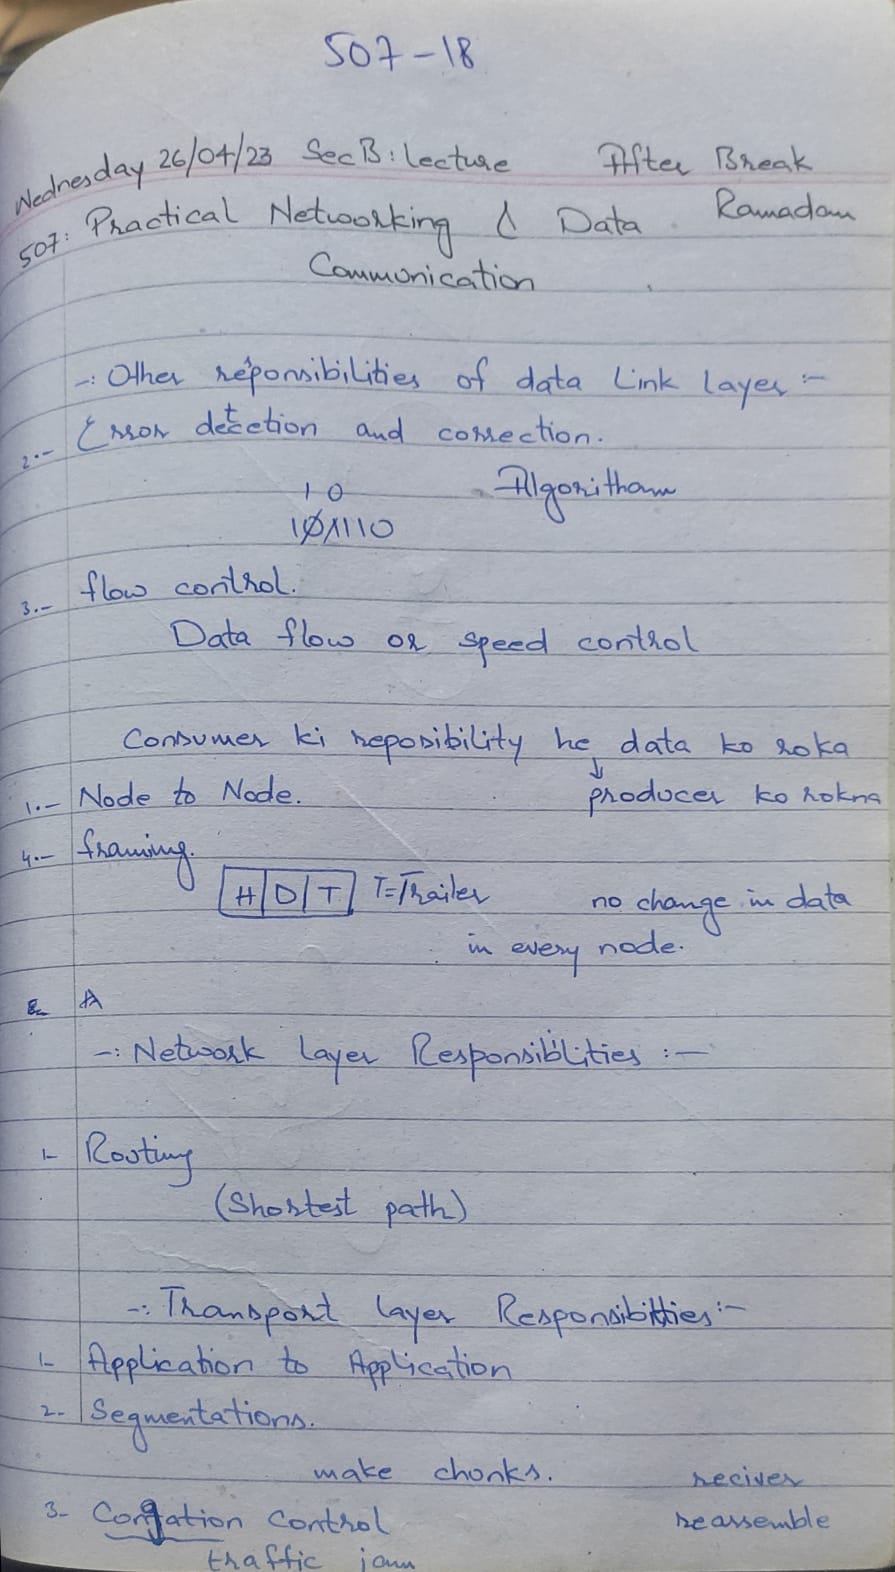 507-18
Wednesday 26/04/23 Sec B: lecture After Break
507: Practical Networking & Data Ramadan
Communication
-: Other reponsibilities of data Link Layer :-
2.- Error detection and correction.
10 Algoritham
3.- flow control.
Data flow or speed control
Consumer ki reposibility he data ko roka
1.- Node to Node. ↓ producer ko rokna
4.- framing.
H D T T=Trailer no change in data
in every node.
A
-: Network Layer Responsiblities :-
1- Routing
(Shortest path)
-: Transport layer Responsibilties :-
1- Application to Application
2- Segmentations.
make chonks. reciver
3- Congation Control reassemble
traffic jam